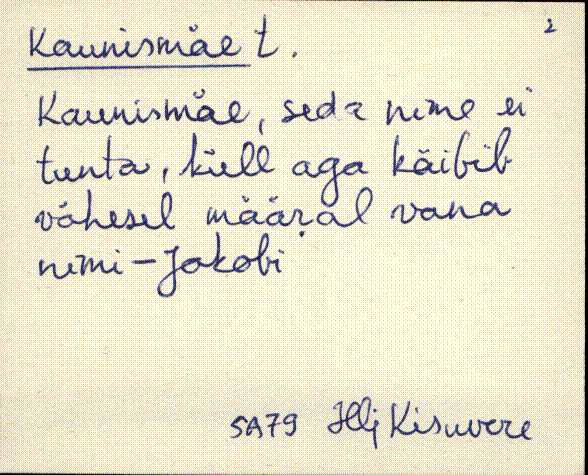 2
Kaunismäe t.
Kaunismäe, seda nime ei
tunta, küll aga käibib
vähesel määral vana
nimi - Jakobi
SA79 Illj Kisuvere